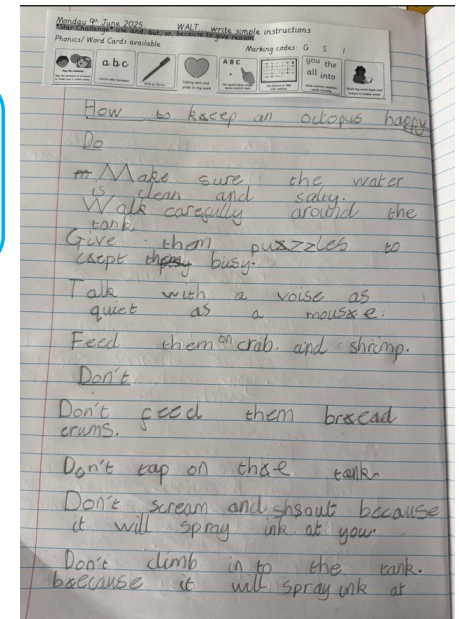 Monday 9th June 2025 WALT write simple instructions
*Star Challenge* use and, but, so, because to give reason
Phonics/ Word Cards available Marking codes: G S I
a b c
A B C
you the
all into
How to keep an octopus happy
Do
Make sure the water
is clean and salty.
Walk carefully around the
tank.
Give them puzzles to
ceept busy.
Talk with a voise as
quiet as a mouse.
Feed them on crab. and shrimp.
Don't
Don't feed them bread
crums.
Don't tap on the tank.
Don't scream and shout because
it will spray ink at you.
Don't climb in to the tank.
because it will spray ink at